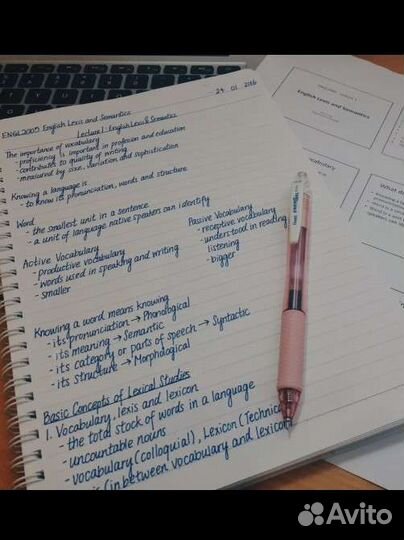 24 . 01 . 2016
ENGL2005 English Lexis and Semantics
Lecture 1 : English Lexis & Semantics
The importance of vocabulary
- proficiency is important in profession and education
- contributes to quality of writing
- measured by size, variation and sophistication
Knowing a language is
- to know its pronunciation, words and structure
Word
- the smallest unit in a sentence
- a unit of language native speakers can identify
Active Vocabulary
- productive vocabulary
- words used in speaking and writing
- smaller
Passive Vocabulary
- receptive vocabulary
- understood in reading
listening
- bigger
Knowing a word means knowing
- its pronunciation → Phonological
- its meaning → Semantic
- its category or parts of speech → Syntactic
- its structure → Morphological
Basic Concepts of Lexical Studies
1. Vocabulary, lexis and lexicon
- the total stock of words in a language
- uncountable nouns
- vocabulary (colloquial), Lexicon (Technic
(in between vocabulary and lexicon)
English Lexis and Semantics
What do
Avito